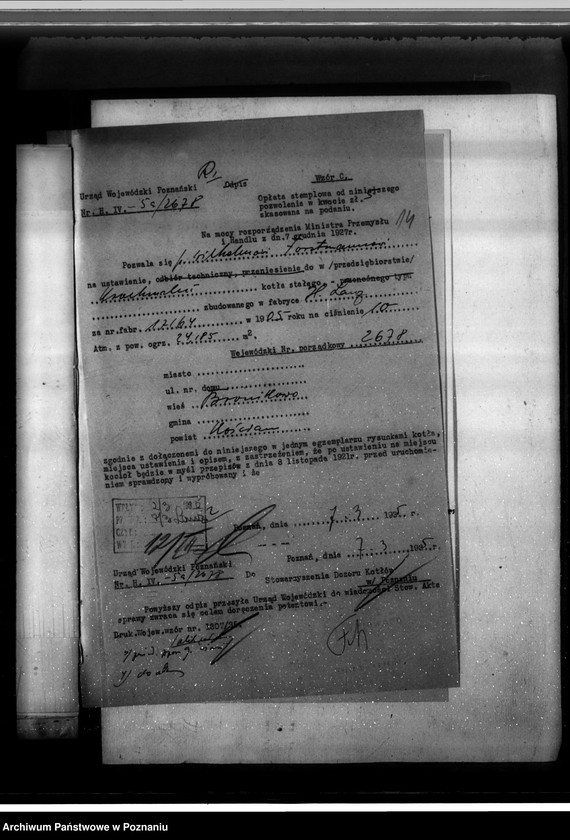 Wzór C.
Urząd Wojewódzki Poznański Odpis
Nr. H. IV. -5c/2678
Opłata stemplowa od niniejszego
pozwolenia w kwocie zł. 5
skasowana na podaniu.
14
Na mocy rozporządzenia Ministra Przemysłu
i Handlu z dn. 7 grudnia 1927r.
Pozwala się p. Wilhelmowi
na ustawienie, odbiór techniczny, przeniesienie do w /przedsiębiorstwie/
kotła stałego - przenośnego typu
zbudowanego w fabryce H. Lanz
za nr.fabr. 17164 w 1905 roku na ciśnienie 10
Atm. z pow. ogrz. 24.185 m².
Wojewódzki Nr. porządkowy 2678
miasto
ul. nr. domu
wieś Bronikowo
gmina
powiat Kościan
zgodnie z dołączonemi do niniejszego w jednym egzemplarzu rysunkami kotła,
miejsca ustawienia i opisem, z zastrzeżeniem, że po ustawieniu na miejscu
kocioł będzie w myśl przepisów z dnia 8 listopada 1921r. przed uruchomie-
niem sprawdzony i wypróbowany i że
Poznań, dnia 7.3 1935 r.
Poznań, dnia 7-3 1935 r.
Urząd Wojewódzki Poznański
Nr. H. IV. -5c/2678
Do
Stowarzyszenia Dozoru Kotłów
w/ Poznaniu
Powyższy odpis przesyła Urząd Wojewódzki do wiadomości Stow. Akta
sprawy zwraca się celem doręczenia petentowi.-
Druk.Wojew.wzór nr. 1807/29.
Archiwum Państwowe w Poznaniu